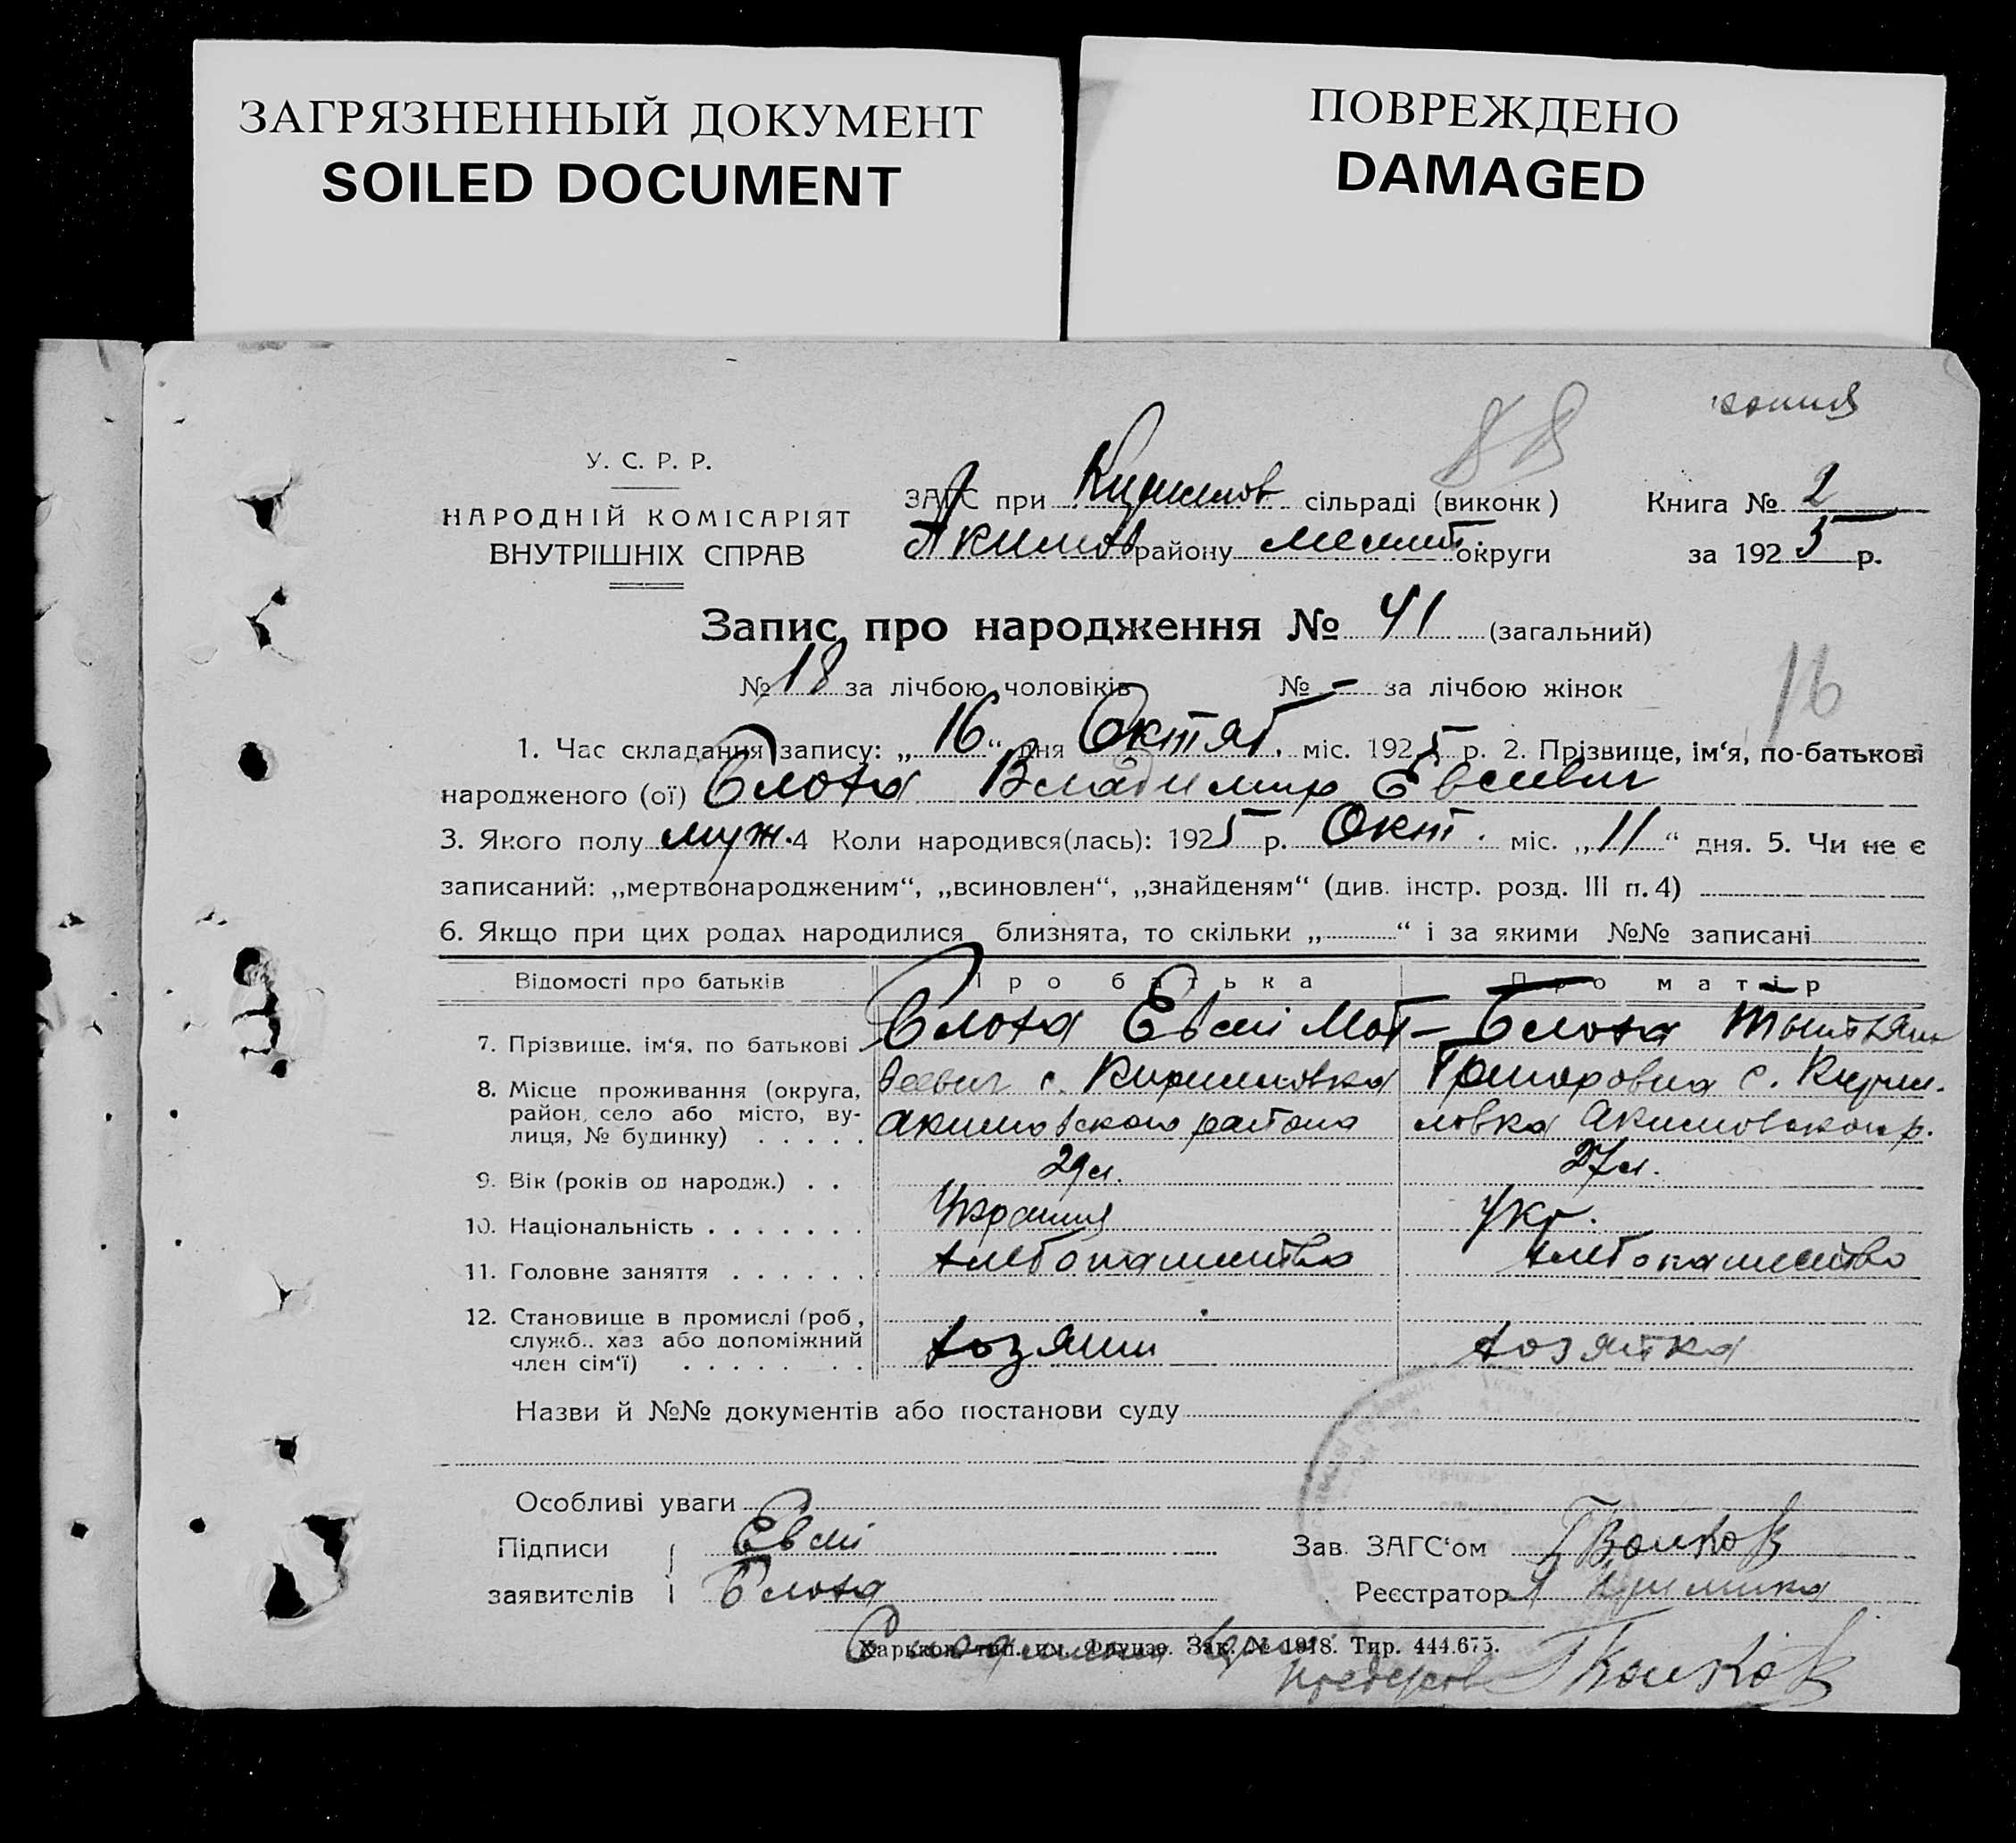 ЗАГРЯЗНЕННЫЙ ДОКУМЕНТ
SOILED DOCUMENT
ПОВРЕЖДЕНО
DAMAGED
копия
88
У. С. Р. Р.
НАРОДНІЙ КОМІСАРІЯТ
ВНУТРІШНІХ СПРАВ
ЗАГС при Кирилов сільраді (виконк)
Акимов району Мелит. округи
Книга № 2
за 1925 р.
Запис про народження № 41 (загальний)
№ 18 за лічбою чоловіків № - за лічбою жінок
16
1. Час складання запису: „16“ дня Октяб. міс. 1925 р. 2. Прізвище, ім‘я, по-батькові
народженого (ої) Блоха Владимир Евсеевич
3. Якого полу муж. 4 Коли народився(лась): 1925 р. Окт. міс. „11“ дня. 5. Чи не є
записаний: „мертвонародженим“, „всиновлен“, „знайденям“ (див. інстр. розд. III п. 4)
6. Якщо при цих родах народилися близнята, то скільки „ “ і за якими №№ записані
Відомості про батьків Про батька Про матір
7. Прізвище, ім‘я, по батькові Блоха Евсей Мат- Блоха
8. Місце проживання (округа, район, село або місто, вулиця, № будинку)
веевич с. Кирилловка Григоровна с. Кирил.
акимовского района ловка Акимовского р.
9. Вік (років од народж.) . . 29 л. 27 л.
10. Національність . . . . . . . Украинц Укр.
11. Головне заняття . . . . . . хлебопашество хлебопашество
12. Становище в промислі (роб,
служб.. хаз або допоміжний
член сім‘ї) . . . . . . . . хозяин хозяйка
Назви й №№ документів або постанови суду
Особливі уваги
Підписи Евсей
заявителів Блоха
Зав. ЗАГС‘ом Г Волков
Реєстратор
Харьков, тип. им. Фрунзе. Зак. № 1918. Тир. 444.675.